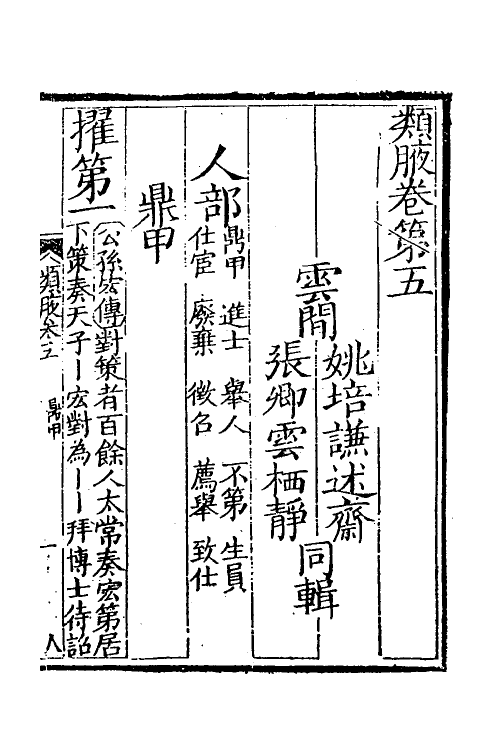 類腋卷第五
雲間
姚培謙述齋
張卿雲栖靜
同輯
人部
鼎甲 進士 舉人 不第 生員
仕宦 廢棄 徵召 薦舉 致仕
鼎甲
擢第一
公孫宏傳對策者百餘人太常奏宏第居
下策奏天子丨宏對為丨丨拜博士待詔
類腋卷五 鼎甲 一 人